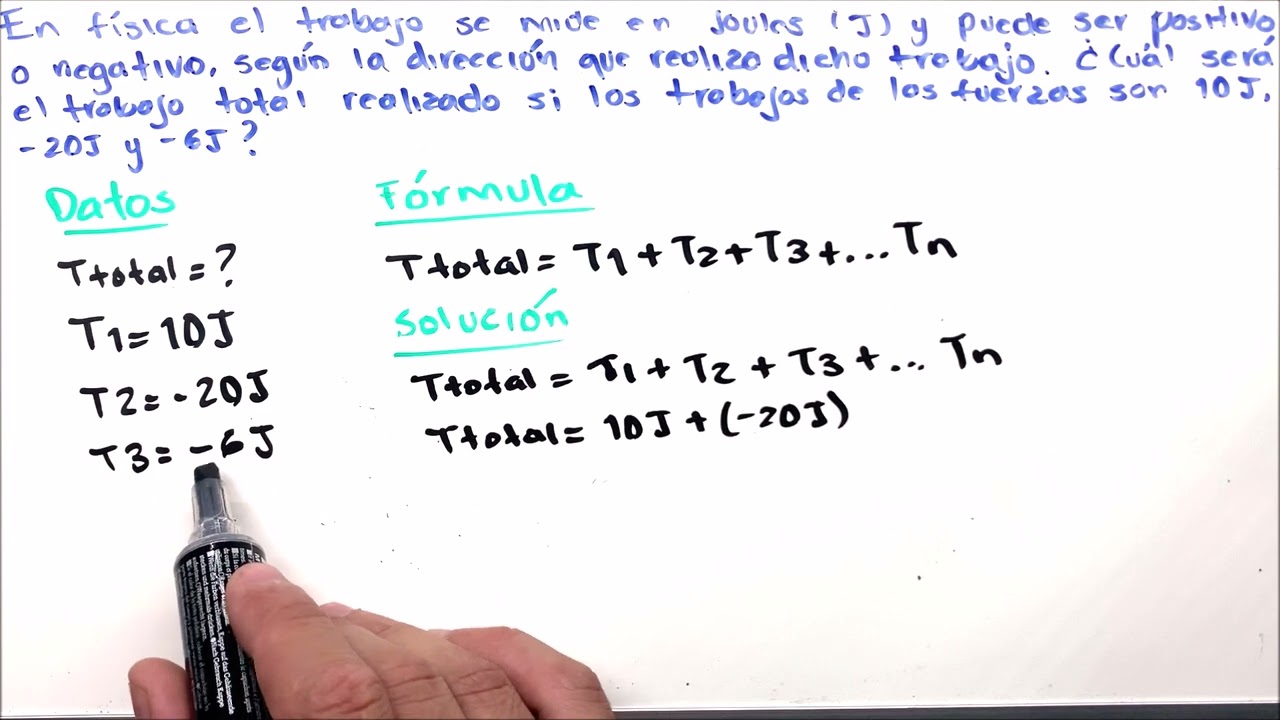 En física el trabajo se mide en joules (J) y puede ser positivo
o negativo, según la dirección que realiza dicho trabajo. ¿Cuál será
el trabajo total realizado si los trabajos de las fuerzas son 10J,
-20J y -6J?
Datos
Ttotal = ?
T1 = 10J
T2 = -20J
T3 = -6J
Fórmula
Ttotal = T1 + T2 + T3 + ... Tn
Solución
Ttotal = T1 + T2 + T3 + ... Tn
Ttotal = 10J + (-20J)